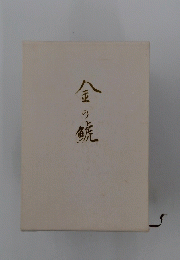 金の鯱